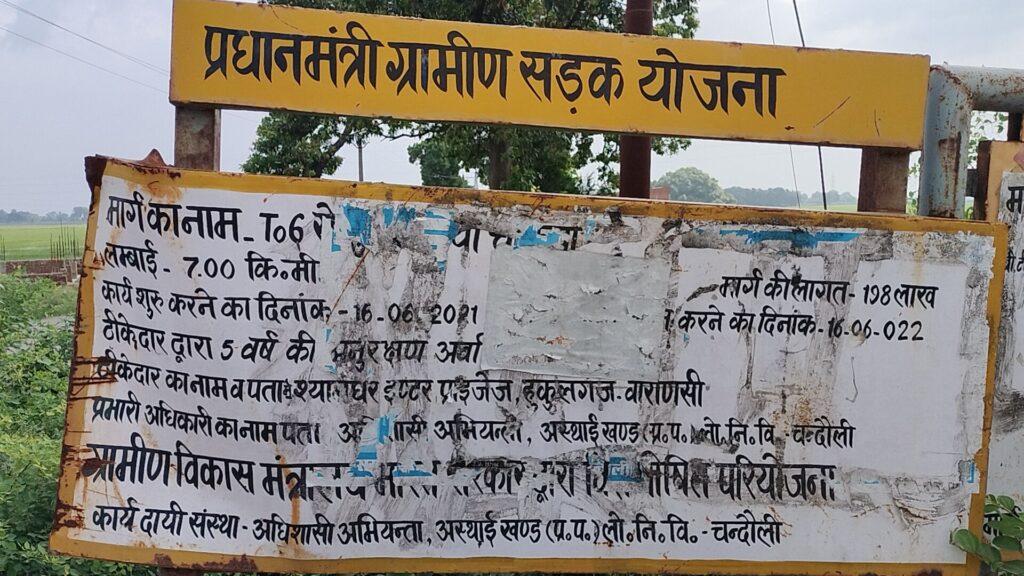 प्रधानमंत्री ग्रामीण सड़क योजना
मार्ग का नाम - T०6 से
लम्बाई - 7.00 कि.मी
मार्ग की लागत - 198 लाख
कार्य शुरु करने का दिनांक - 16-06-2021
करने का दिनांक - 16-06-022
ठीकेदार द्वारा 5 वर्ष की अनुरक्षण
ठीकेदार का नाम व पता इण्टर प्राइजेज, हुकुलगंज-वाराणसी
प्रभारी अधिकारी का नाम पता अभियन्ता, अस्थाई खण्ड (प्र.प.) लो.नि.वि.- चन्दौली
ग्रामीण विकास मंत्रालय भारत सरकार द्वारा परियोजना
कार्य दायी संस्था - अधिशासी अभियन्ता, अस्थाई खण्ड (प्र.प.) लो.नि.वि.- चन्दौली